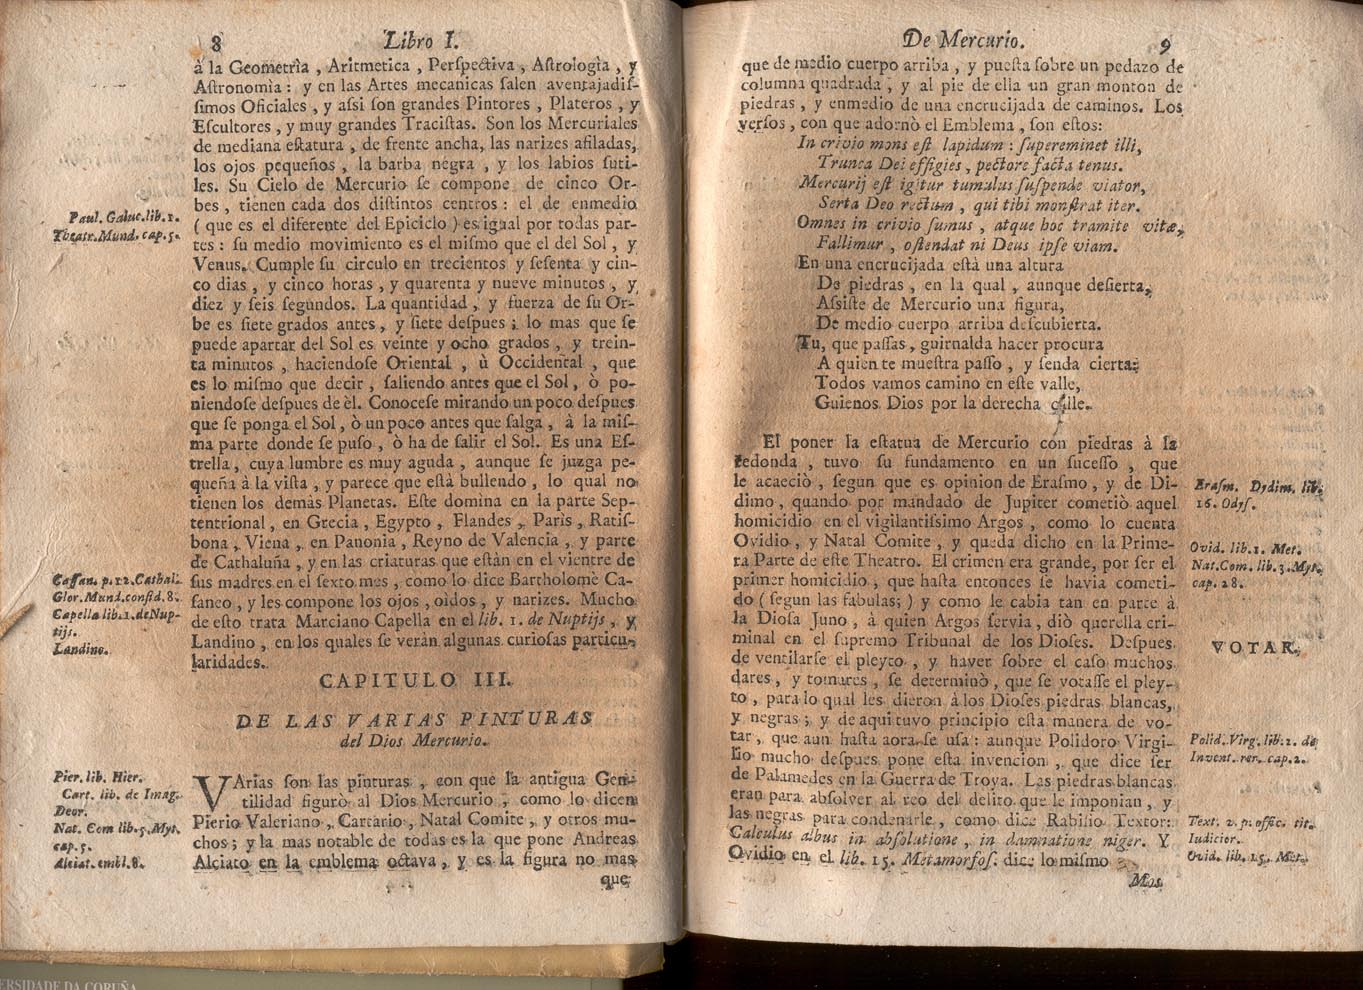 8 Libro I.
à la Geometrìa , Aritmetica , Perſpectiva , Aſtrologìa , y
Aſtronomìa : y en las Artes mecanicas ſalen aventajadiſ-
ſimos Oficiales , y aſsi ſon grandes Pintores , Plateros , y
Eſcultores , y muy grandes Traciſtas. Son los Mercuriales
de mediana eſtatura , de frente ancha, las narizes afiladas,
los ojos pequeños , la barba negra , y los labios ſuti-
les. Su Cielo de Mercurio ſe compone de cinco Or-
bes , tienen cada dos diſtintos centros : el de enmedio
( que es el diferente del Epiciclo ) es igual por todas par-
tes : ſu medio movimiento es el miſmo que el del Sol , y
Venus. Cumple ſu circulo en trecientos y ſeſenta y cin-
co dias , y cinco horas , y quarenta y nueve minutos , y
diez y ſeis ſegundos. La quantidad , y fuerza de ſu Or-
be es ſiete grados antes , y ſiete deſpues ; lo mas que ſe
puede apartar del Sol es veinte y ocho grados , y trein-
ta minutos , haciendoſe Oriental , ù Occidental , que
es lo miſmo que decir , ſaliendo antes que el Sol , ò po-
niendoſe deſpues de èl. Conoceſe mirando un poco deſpues
que ſe ponga el Sol , ò un poco antes que ſalga , à la miſ-
ma parte donde ſe puſo , ò ha de ſalir el Sol. Es una Eſ-
trella , cuya lumbre es muy aguda , aunque ſe juzga pe-
queña à la viſta , y parece que eſtà bullendo , lo qual no
tienen los demàs Planetas. Eſte domina en la parte Sep-
tentrional , en Grecia , Egypto , Flandes , Paris , Ratiſ-
bona , Viena , en Panonia , Reyno de Valencia , y parte
de Cathaluña , y en las criaturas que eſtàn en el vientre de
ſus madres en el ſexto mes , como lo dice Bartholomè Ca-
ſaneo , y les compone los ojos , oìdos , y narizes. Mucho
de eſto trata Marciano Capella en el lib. 1. de Nuptijs , y
Landino , en los quales ſe veràn algunas curioſas particu-
laridades.
Paul. Galuc. lib. 1.
Theatr. Mund. cap. 5.
Caſſan. p. 12. Cathal.
Glor. Mund. conſid. 8.
Capella lib. 1. de Nup-
tijs.
Landino.
CAPITULO III.
DE LAS VARIAS PINTURAS
del Dios Mercurio.
VArias ſon las pinturas , con que la antigua Gen-
tilidad figurò al Dios Mercurio , como lo dicen
Pierio Valeriano , Cartario , Natal Comite , y otros mu-
chos ; y la mas notable de todas es la que pone Andreas
Alciato en la emblema octava , y es la figura no mas
que
Pier. lib. Hier.
Cart. lib. de Imag.
Deor.
Nat. Com lib. 5. Myt.
cap. 5.
Alciat. embl. 8.
De Mercurio. 9
que de medio cuerpo arriba , y pueſta ſobre un pedazo de
columna quadrada , y al pie de ella un gran monton de
piedras , y enmedio de una encrucijada de caminos. Los
verſos , con que adornò el Emblema , ſon eſtos:
In crivio mons eſt lapidum : ſupereminet illi,
Trunca Dei effigies , pectore facta tenus.
Mercurij eſt igitur tumulus ſuſpende viator,
Serta Deo rectum , qui tibi monſtrat iter.
Omnes in crivio ſumus , atque hoc tramite vitæ,
Fallimur , oſtendat ni Deus ipſe viam.
En una encrucijada eſtà una altura
De piedras , en la qual , aunque deſierta,
Aſsiſte de Mercurio una figura,
De medio cuerpo arriba deſcubierta.
Tu, que paſſas , guirnalda hacer procura
A quien te mueſtra paſſo , y ſenda cierta:
Todos vamos camino en eſte valle,
Guienos Dios por la derecha calle.
El poner la eſtatua de Mercurio con piedras à la
redonda , tuvo ſu fundamento en un ſuceſſo , que
le acaeciò , ſegun que es opinion de Eraſmo , y de Di-
dimo , quando por mandado de Jupiter cometiò aquel
homicidio en el vigilantiſsimo Argos , como lo cuenta
Ovidio , y Natal Comite , y queda dicho en la Prime-
ra Parte de eſte Theatro. El crimen era grande, por ſer el
primer homicidio , que haſta entonces ſe havia cometi-
do ( ſegun las fabulas; ) y como le cabìa tan en parte à
la Dioſa Juno , à quien Argos ſervìa , diò querella cri-
minal en el ſupremo Tribunal de los Dioſes. Deſpues
de ventilarſe el pleyto , y haver ſobre el caſo muchos
dares , y tomares , ſe determinò , que ſe votaſſe el pley-
to , para lo qual les dieron à los Dioſes piedras blancas,
y negras ; y de aqui tuvo principio eſta manera de vo-
tar , que aun haſta aora ſe uſa : aunque Polidoro Virgi-
lio mucho deſpues pone eſta invencion , que dice ſer
de Palamedes en la Guerra de Troya. Las piedras blancas
eran para abſolver al reo del delito que le imponian , y
las negras para condenarle , como dice Rabiſio Textor:
Calculus albus in abſolutione , in damnatione niger. Y
Ovidio en el lib. 15. Metamorfoſ. dice lo miſmo
Mos
Eraſm. Dydim. lib.
16. Odyſ.
Ovid. lib. 1. Met.
Nat. Com. lib. 3. Myt.
cap. 28.
VOTAR.
Polid. Virg. lib. 2. de
Invent. rer. cap. 2.
Text. 2. p. offic. tit.
Iudicier.
Ovid. lib. 15. Met.
ERSIDADE DA CORUÑA